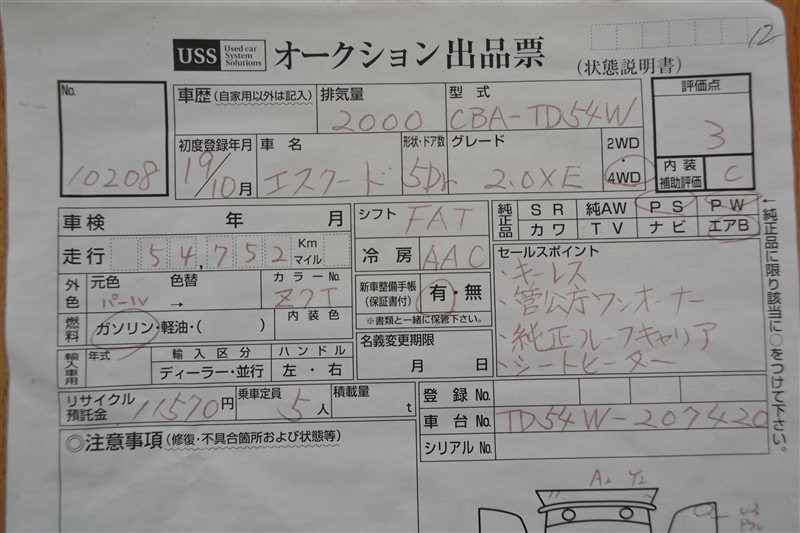 12
USS Used car System Solutions オークション出品票 (状態説明書)
No. 10208
車歴 (自家用以外は記入)
排気量 2000
型式 CBA-TD54W
評価点 3
初度登録年月 19/10月
車名 エスクード
形状・ドア数 5Dr
グレード 2.0XE
2WD・4WD
内装補助評価 C
車検 年 月
シフト FAT
純正品 SR 純AW PS PW
カワ TV ナビ エアB
走行 54,752 Km マイル
冷房 AAC
←純正品に限り該当に○をつけて下さい。
外色 元色 パール 色替 → カラーNo. Z7T
新車整備手帳(保証書付) 有・無
※書類と一緒に保管下さい。
セールスポイント
・キーレス
・管公庁ワンオーナー
・純正ルーフキャリア
・シートヒーター
燃料 ガソリン・軽油・( ) 内装色
名義変更期限 月 日
輸入車用 年式 輸入区分 ハンドル
ディーラー・並行 左・右
リサイクル預託金 11570円
乗車定員 5人
積載量 t
登録No.
車台No. TD54W-207420
シリアルNo.
◎注意事項(修復・不具合箇所および状態等)
A2 Y2